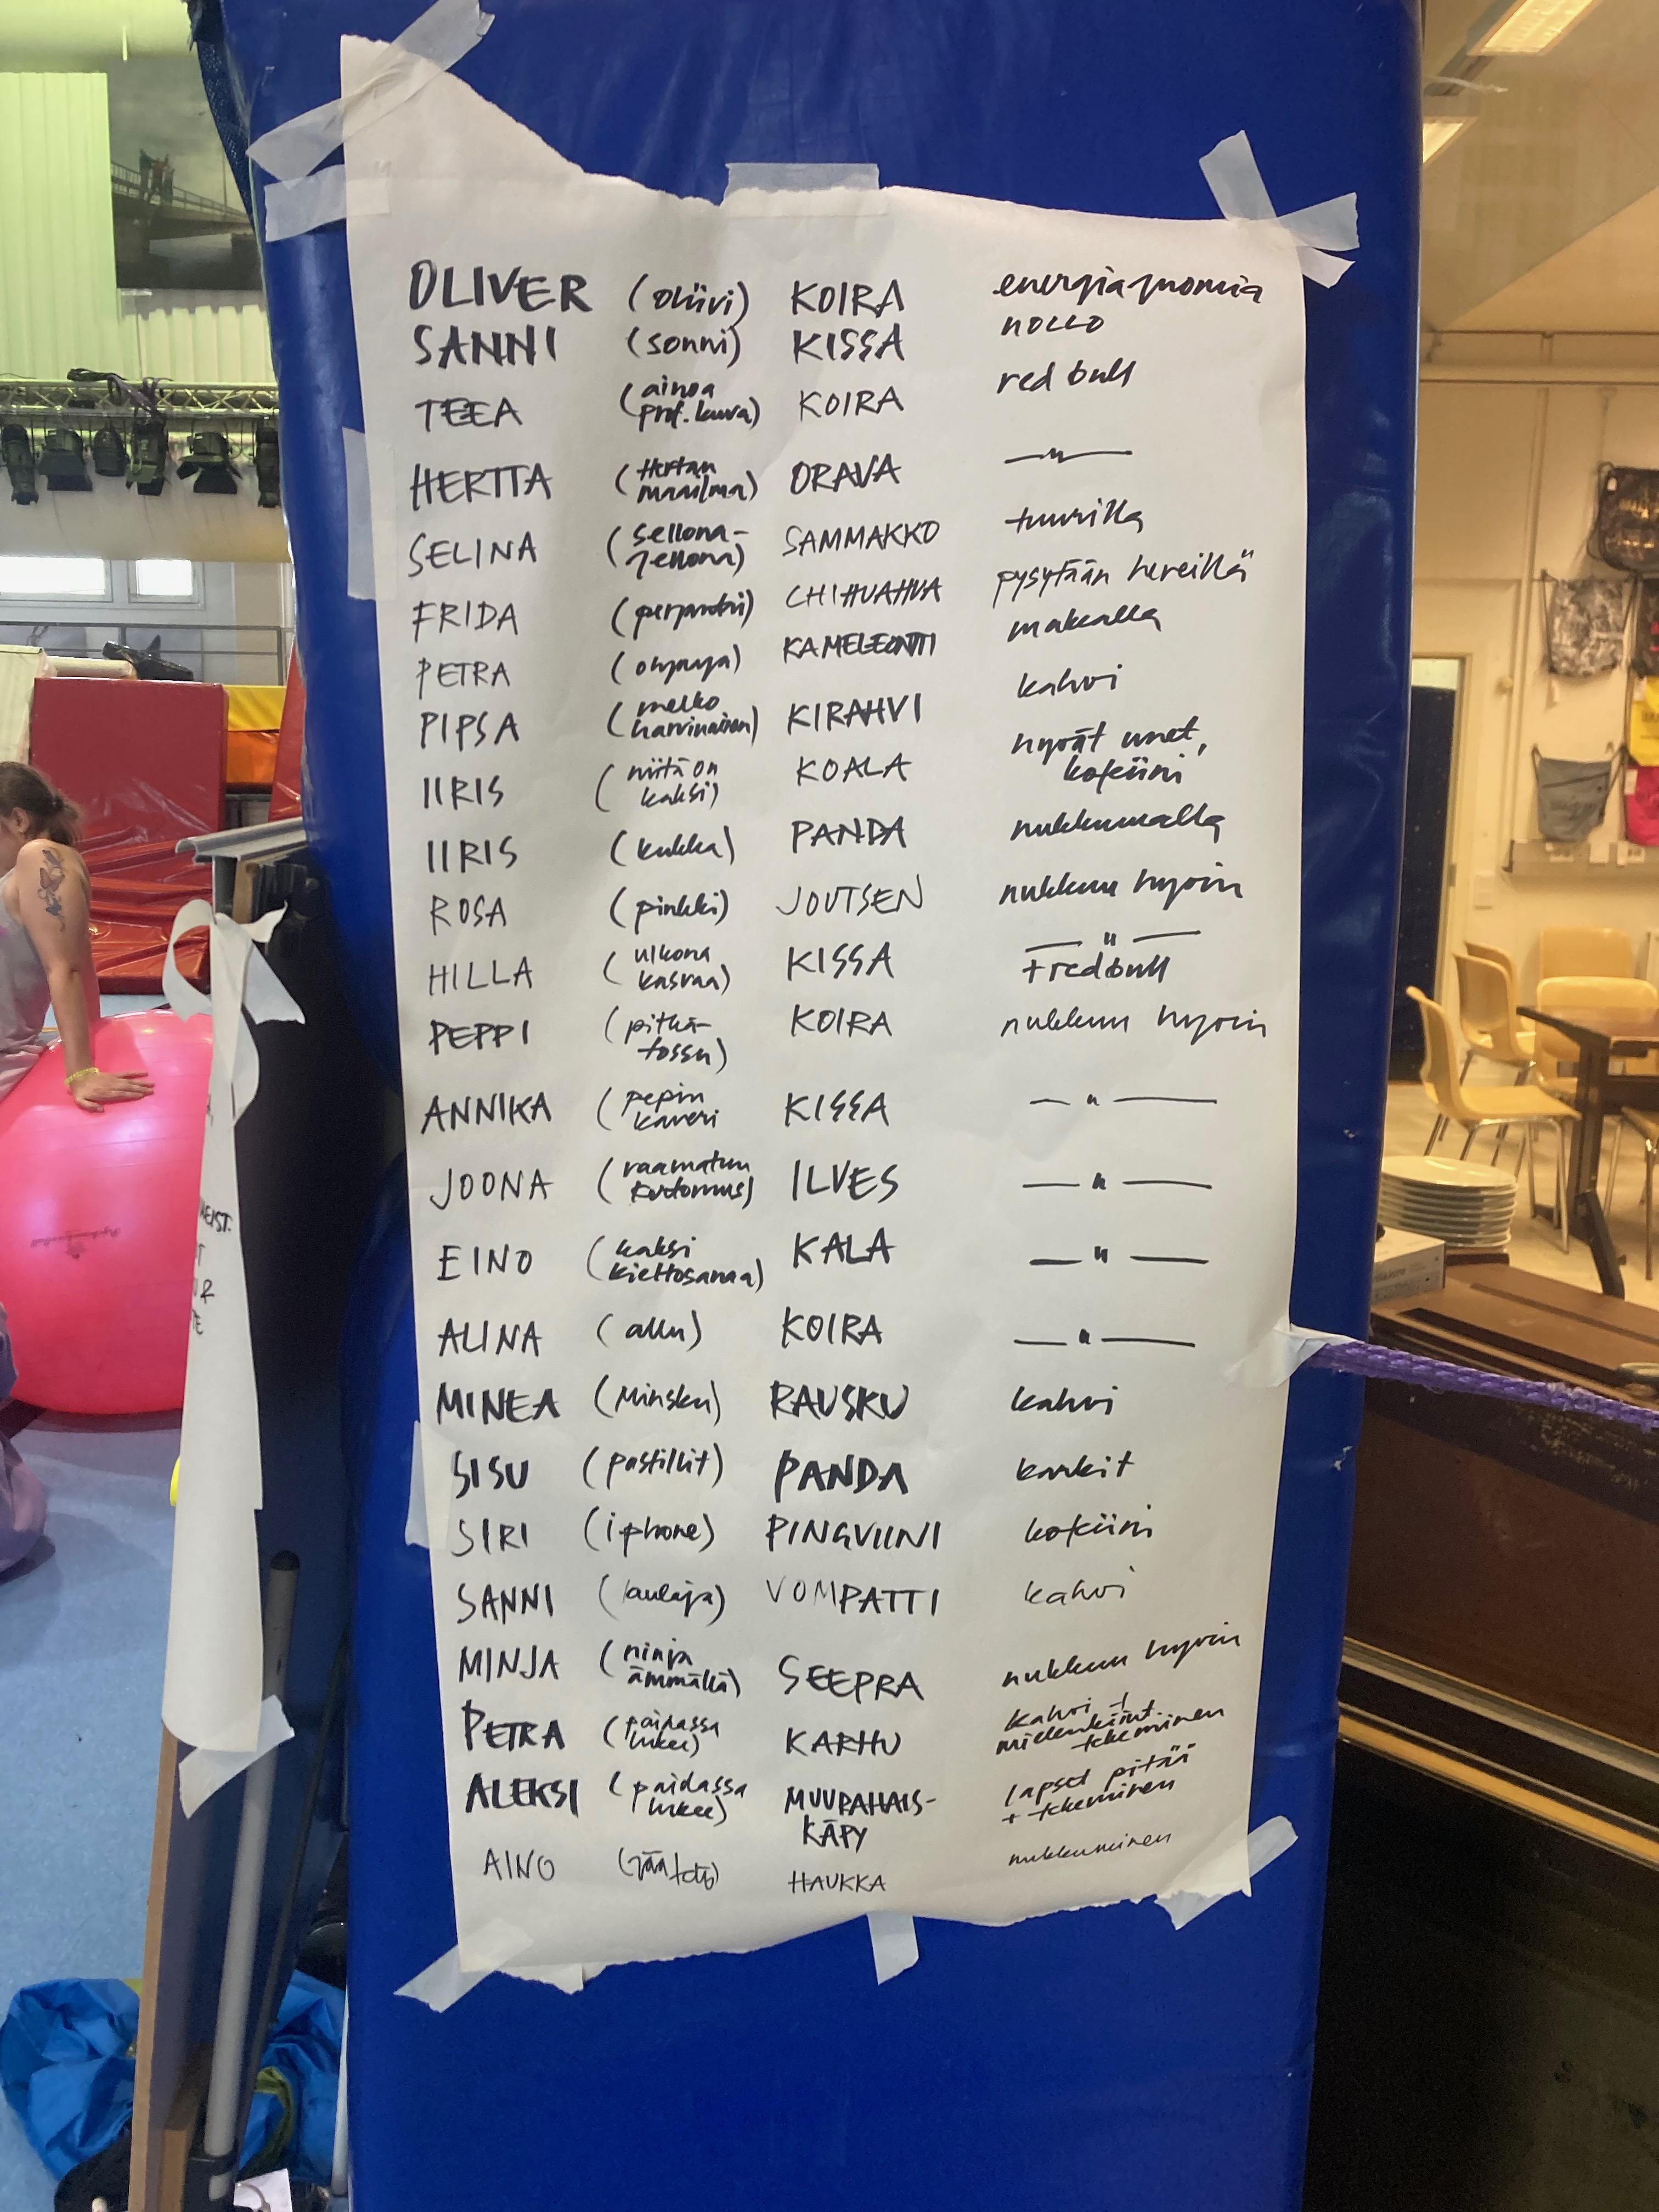 OLIVER (oliivi) KOIRA energiajuomia
SANNI (sonni) KISSA NOCCO
TEEA (ainoa prof. kuva) KOIRA red bull
HERTTA (Hertan maailma) ORAVA —"—
SELINA (sellona-jellona) SAMMAKKO tuurilla
FRIDA CHIHUAHUA pysytään hereillä
PETRA (ohjaaja) KAMELEONTTI makealla
PIPSA (melko harvinainen) KIRAHVI kahvi
IIRIS (niitä on kaksi) KOALA hyvät unet, kofeiini
IIRIS (kukka) PANDA nukkumalla
ROSA (pinkki) JOUTSEN nukkuu hyvin
HILLA (ulkona kasvaa) KISSA —"— + redbull
PEPPI (pitkä-tossu) KOIRA nukkuu hyvin
ANNIKA (pepin kaveri KISSA —"—
JOONA (raamatun kertomus) ILVES —"—
EINO (kaksi kieltosanaa) KALA —"—
ALINA (allu) KOIRA —"—
MINEA (Minsku) RAUSKU kahvi
SISU (pastillit) PANDA karkit
SIRI (iphone) PINGVIINI kofeiini
SANNI (laulaja) VOMPATTI kahvi
MINJA (ninja ämmällä) SEEPRA nukkuu hyvin
PETRA (paidassa lukee) KARHU kahvi + mielenkiint. tekeminen
ALEKSI (paidassa lukee) MUURAHAIS-KÄPY lapset pitää + tekeminen
AINO (jäätelö) HAUKKA nukkuminen